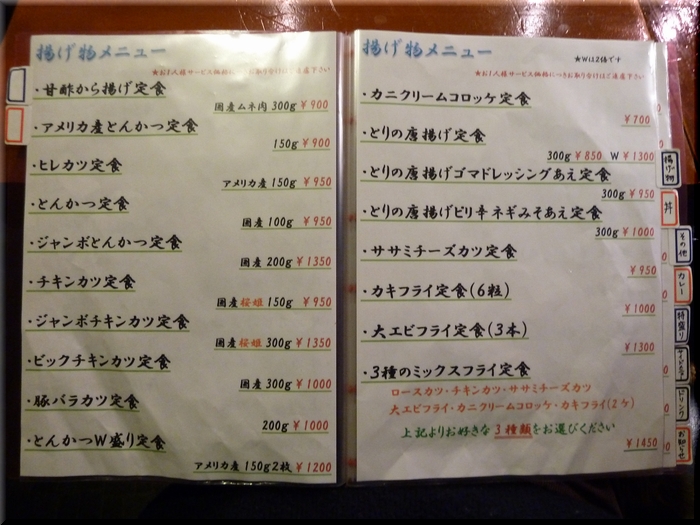 揚げ物メニュー
★お1人様サービス価格につきお取り分けはご遠慮下さい
・甘酢から揚げ定食
国産ムネ肉 300g ¥900
・アメリカ産とんかつ定食
150g ¥900
・ヒレカツ定食
アメリカ産 150g ¥950
・とんかつ定食
国産 100g ¥950
・ジャンボとんかつ定食
国産 200g ¥1350
・チキンカツ定食
国産桜姫 150g ¥950
・ジャンボチキンカツ定食
国産桜姫 300g ¥1350
・ビックチキンカツ定食
国産 300g ¥1000
・豚バラカツ定食
200g ¥1000
・とんかつW盛り定食
アメリカ産 150g2枚 ¥1200
揚げ物メニュー
★Wは2倍です
★お1人様サービス価格につきお取り分けはご遠慮下さい
・カニクリームコロッケ定食
¥700
・とりの唐揚げ定食
300g ¥850 W ¥1300
・とりの唐揚げゴマドレッシングあえ定食
300g ¥950
・とりの唐揚げピリ辛ネギみそあえ定食
300g ¥1000
・ササミチーズカツ定食
¥950
・カキフライ定食(6粒)
¥1000
・大エビフライ定食(3本)
¥1300
・3種のミックスフライ定食
ロースカツ・チキンカツ・ササミチーズカツ
大エビフライ・カニクリームコロッケ・カキフライ(2ケ)
上記よりお好きな 3種類をお選びください
¥1450
揚げ物
丼
その他
カレー
特盛り
ドリンク
お知らせ